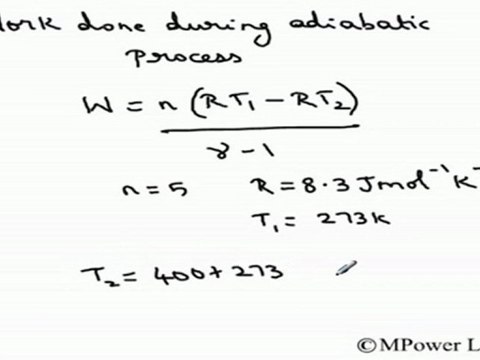 Work done during adiabatic
Process
W = n (RT₁ − RT₂)
γ − 1
n = 5 R = 8.3 Jmol⁻¹K⁻
T₁ = 273K
T₂ = 400 + 273
©MPower L